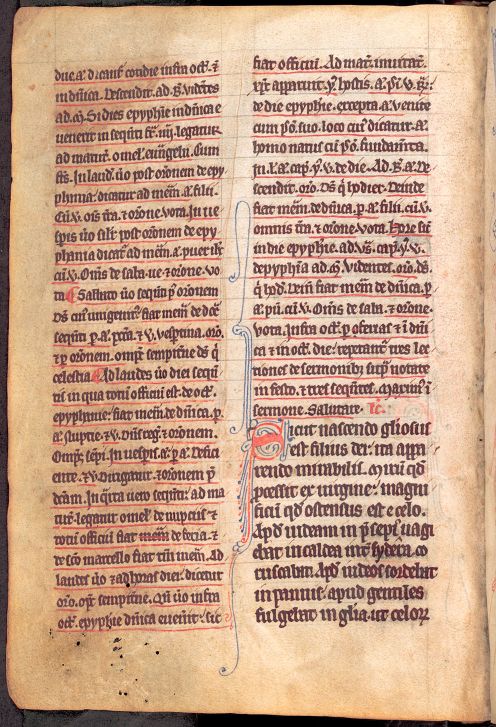 duc. a. dicant' cotidie infra oct'. et
in dn̄ica. Descendit. ad. B. videntes
ad. M. Si dies epyphie in dn̄ica e
venerit in seq̄nti fr̄. iiii. legatur
ad matut'. omel' euūgelii. Cum
In laud' uo post orōnem de epy
phania. dicatur ad mem̄. a. filii.
Cū. v. oīs tr̄a. et orōne. vota. In ue
sp̄is uo sil'r post orōnem de epy
phania dicat' ad mem̄. a. puer ih'c
cū. v. Om̄s de saba. ue et orōne. vo
ta. Sabbato uo seq̄nti p' orōnem
Ds̄ cui' unigenit' fiat mem̄ de do
seq̄nti p. a. et v. vesp̄tina. oro.
et p' orōnem. omp̄s sempit̄ne ds̄ q̄
celestia. Ad laudes uo diei seq̄n
tis in qua toti' officiū est. de oct'.
epyphanie: fiat mem̄ de dn̄ica. p.
a. et. v. Dn̄s reg'. et orōnem.
Omp̄s. semp̄. In uesp̄is. a. p. a. Defici
ente. et v. Dirigatur. et orōnem p'
dc̄am. In q̄nta uero seq̄nti: ad ma
tut'. legant' omel' de nuptiis et
toti' officii fiat mem̄ de feria. et
de sc̄o marcello fiat tn̄ mem̄. Ad
laudes uo et ad horas diei: dicetur
oro. op̄s sempit̄ne. Qn̄ uo infra
oct'. epyphie dn̄ica euen̄it: sic
fiat officiū. Ad mat'. inuitat'.
xp̄c apparuit. y. hostis. a. ps'i. v. R̄.
de die epyphie. excepta. a. Venite
cum ps'o. suo. loco cui' dicatur. a.
homo natus cū ps'o. fundamēta.
In. l. a. cap'. y. v. de die. Ad. B. a. De
scendit. oro. Ds̄ q̄ hodier. Deinde
fiat mem̄. de dn̄ica. p. a. filii. cū. v.
omnis tr̄a. et orōne. vota. Hore sic̄
in die epyphie. ad. vs̄. cap'. y. v.
de epyphia ad. M. videntes. oro. ds̄.
q̄ hod'. Dein̄ fiat mem̄ de dn̄ica. p.
a. pū. cū. v. Om̄s de saba. et orōne.
vota. Infra oct'. p. ferias et in dn̄i
ca et in oct'. die: repetant' tres lec
tiones de sermonib; sup̄ notate
in festo. et tres seq̄ntes. maximi. i
sermone. Salutate. Lc.
Sicut nascendo gliosus
est filius dei: ita appa
rendo mirabilis. Miri qd̄
processit ex uirgine: magni
fici qd̄ ostensus est e celo.
Apd̄ iudeam in p̄sepi uagi
ebat in caldea int' sydera co
ruscabat. Apd̄ iudeos sordebat
in pannis: apud gentiles
fulgebat in gl̄ia. ut celor̄